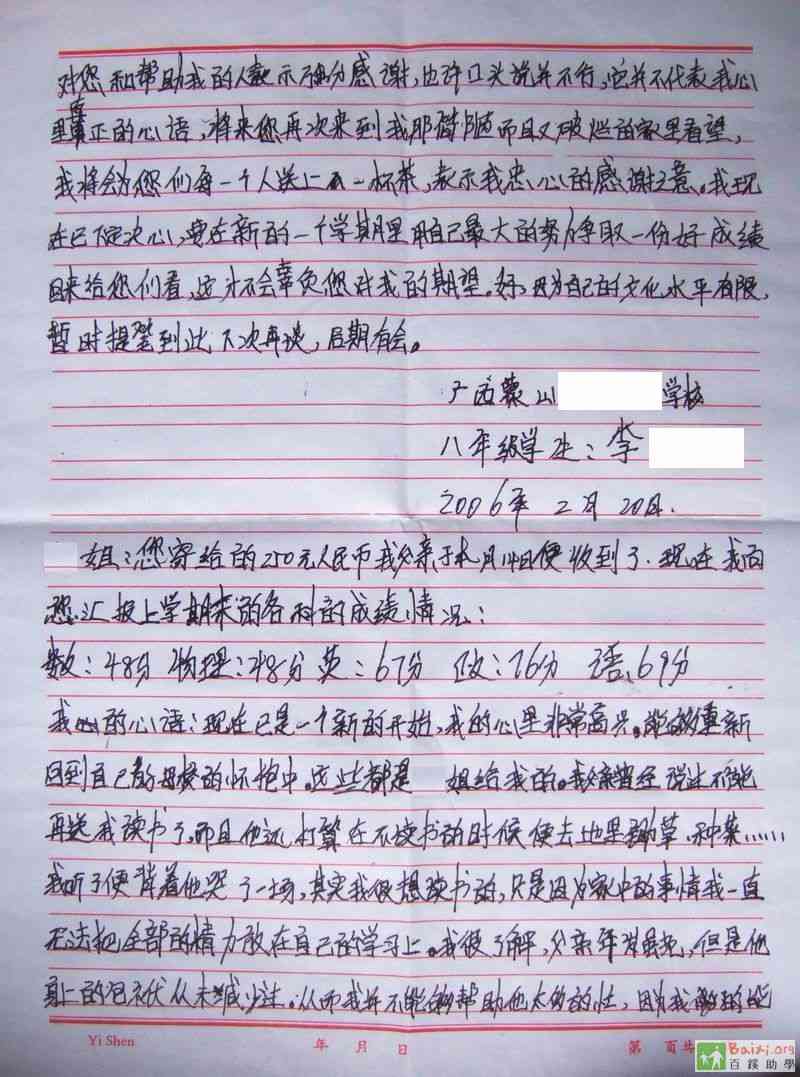 对您和帮助我的人表示强力感谢,也许口头说并不行,它并不代表我心
里真正的心语,将来您再次来到我那偏陋而且又破烂的家里看望,
我将会为您们每一个人送上一杯茶,表示我忠心的感谢之意。我现
在已下定决心,要在新的一个学期里用自己最大的努力争取一份好成绩
回来给您们看,这才不会辜负您对我的期望。好,因为自己的文化水平有限,
暂时提笔到此下次再谈,后期有会。
广西蒙山 学校
八年级学生:李
2006年2月20日.
姐:您寄给的250元人民币我父亲于 月14日便收到了.现在我向
您汇报上学期末的各科的成绩情况:
数:48分 物理:48分 英:67分 政:76分 语:69分
我的心语:现在已是一个新的开始,我的心里非常高兴。能够重新
回到自己的母校的怀抱中。这些都是 姐给我的。我父亲曾经说过不能
再送我读书了,而且他还打算在不读书的时候便去地里锄草、种菜……
我听了便背着他哭了一场,其实我很想读书的,只是因为家中的事情我一直
无法把全部的精力放在自己的学习上。我很了解,父亲年岁虽老,但是他
身上的包袱从未减少过。从而我并不能够帮助他太多的忙,因为我 的
Yi Shen
年 月 日
第 页共
Baixi.org
百蹊助學